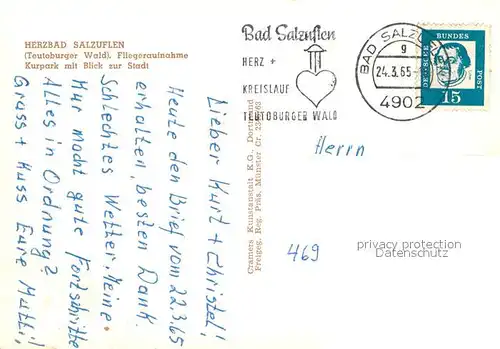 HERZBAD SALZUFLEN
(Teutoburger Wald). Fliegeraufnahme
Kurpark mit Blick zur Stadt
Bad Salzuflen
HERZ +
KREISLAUF
TEUTOBURGER WALD
BAD SALZUFLEN
g
24.3.65
4902
DEUTSCHE BUNDESPOST
15
Lieber Kurt + Christel!
Heute den Brief vom 22.3.65
erhalten, besten Dank.
Schlechtes Wetter. Meine
Kur macht gute Fortschritte
Alles in Ordnung?
Gruss + Kuss Eure Mutti!
Cramers Kunstanstalt K.G., Dortmund
Freigeg. Reg. Präs. Münster Cr.
Herrn
469
privacy protection
Datenschutz